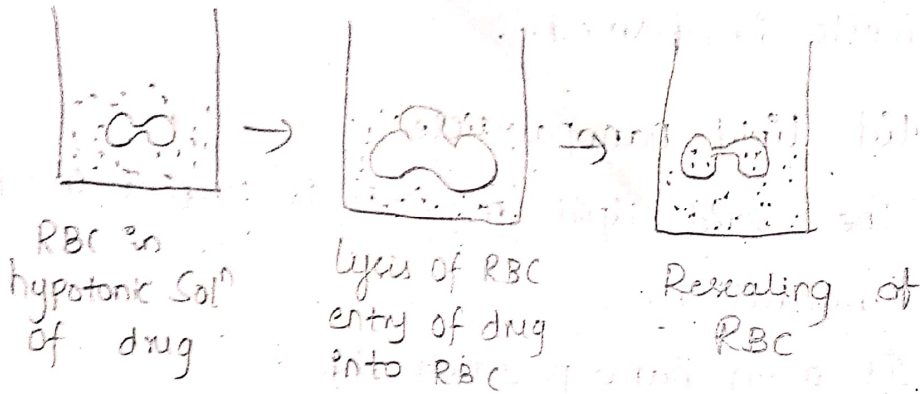 RBC in
hypotonic Solⁿ
of drug
Lysis of RBC
entry of drug
into RBC
Resealing of
RBC